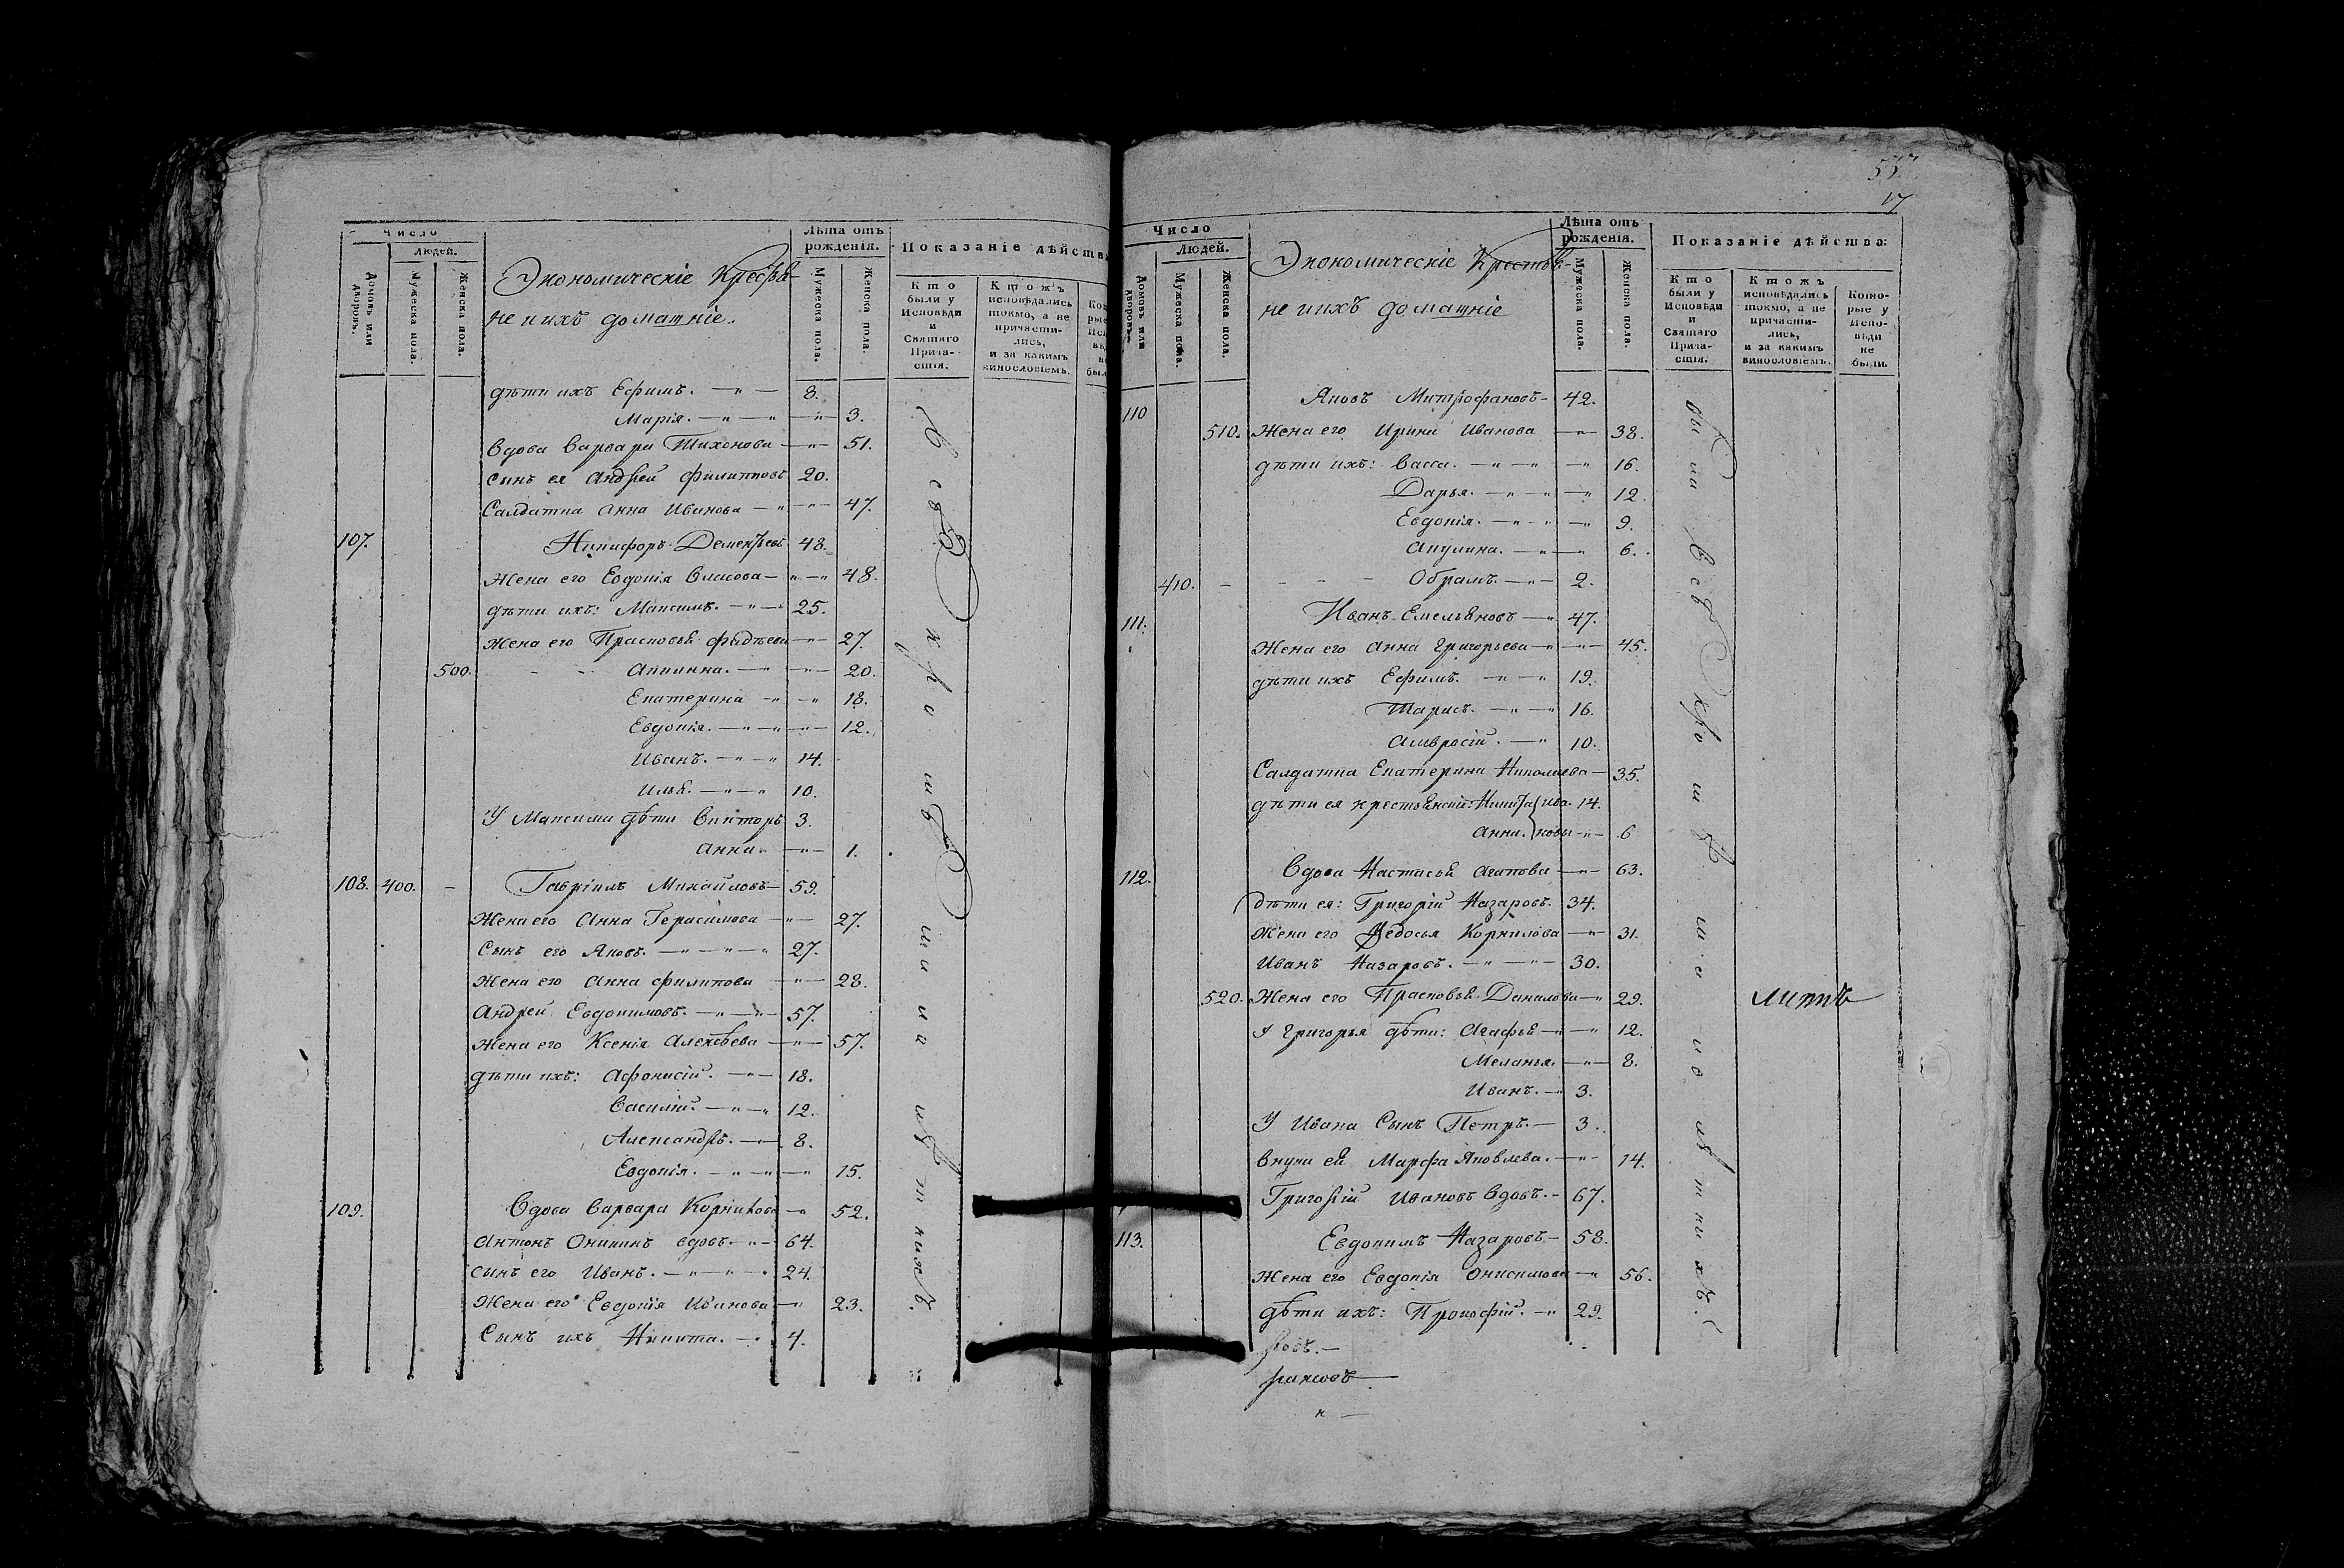 Число
Людей.
Домовъ или дворовъ.
Мужеска пола.
Женска пола.
Экономическіе Крестья-
не и ихъ домашніе.
Лѣта отъ рожденія.
Мужеска пола.
Женска пола.
Показаніе дѣйства
Кто были у Исповѣди и Святаго Прича-стія.
Ктожъ исповѣдались токмо, а не причасти-лись, и за какимъ винословіемъ.
дѣти ихъ Ефимъ. 8.
Марія. 3.
Вдова Варвара Тихонова 51.
сынъ ея Андрей Филипповъ 20.
Салдатка Анна Иванова 47.
107. Никифоръ Дементьевъ 48.
Жена его Евдокія Власова 48.
дѣти ихъ: Максимъ. 25.
Жена его Прасковья Фадѣева 27.
500. Акилина. 20.
Екатерина 18.
Евдокія. 12.
Иванъ. 14.
Илья. 10.
У Максима дѣти Викторъ 3.
Анна. 1.
108. 400. Гавріилъ Михайловъ 59.
Жена его Анна Герасимова 27.
Сынъ его Яковъ. 27.
Жена его Анна Филипова 28.
Андрей Евдокимовъ. 57.
Жена его Ксенія Алексѣева 57.
дѣти ихъ: Афонасій. 18.
Василій. 12.
Александръ. 8.
Евдокія. 15.
109. Вдова Варвара Корнилова 52.
Антонъ Оникинъ вдовъ. 64.
сынъ его Иванъ. 24.
Жена его Евдокія Иванова 23.
Сынъ ихъ Никита. 4.
Всѣ кромѣ малолѣтнихъ.
17
Число
Людей.
Домовъ или дворовъ.
Мужеска пола.
Женска пола.
Экономическіе Крестья-
не и ихъ домашніе
Лѣта отъ рожденія.
Мужеска пола.
Женска пола.
Показаніе дѣйства:
Кто были у Исповѣди и Святаго Прича-стія.
Ктожъ исповѣдались токмо, а не причасти-лись, и за какимъ винословіемъ.
Кото-рые у Испо-вѣди не были.
110 Яковъ Митрофановъ 42.
510. Жена его Ирина Иванова 38.
дѣти ихъ: Васса. 16.
Дарья. 12.
Евдокія. 9.
Акулина. 6.
410. Обрамъ. 2.
111. Иванъ Емельяновъ 47.
Жена его Анна Григорьева 45.
дѣти ихъ Ефимъ. 19.
Тарасъ. 16.
Амвросій. 10.
Салдатка Екатерина Николаева 35.
дѣти ея крестьянскія: Никита Ива- 14.
Анна. новы 6
112. Вдова Настасья Агапова 63.
дѣти ея: Григорій Назаровъ. 34.
Жена его Ѳедосья Корнилова 31.
Иванъ Назаровъ. 30.
520. Жена его Прасковья Данилова 29.
У Григорья дѣти: Агафья 12.
Меланья. 8.
Иванъ. 3.
У Ивана Сынъ Петръ. 3.
Внука ея Марфа Яковлева. 14.
Григорій Ивановъ вдовъ. 67.
113. Евдокимъ Назаровъ 58.
Жена его Евдокія Онисимова 56.
дѣти ихъ: Прокофій. 29.
были всѣ кромѣ малолѣтнихъ.